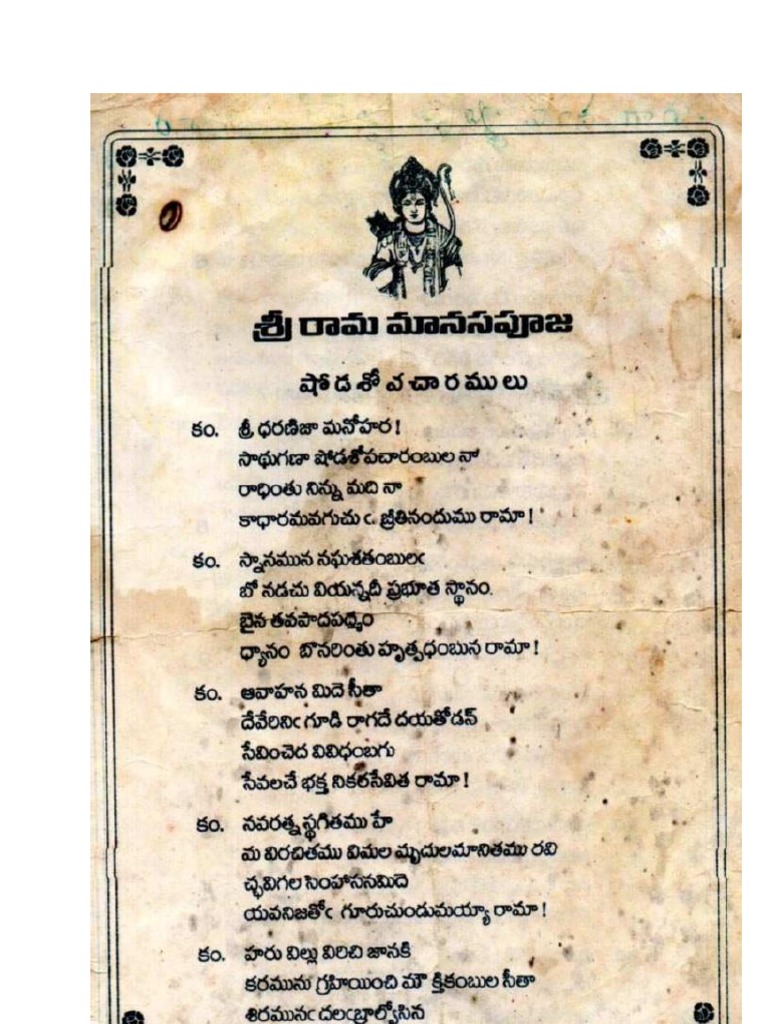 శ్రీ రామ మానసపూజ
షోడశోపచారములు
కం. శ్రీ ధరణిజా మనోహర!
సాథుగణా షోడశోపచారంబుల నా
రాధింతు నిన్ను మది నా
కాధారమవగుచుఁ బ్రీతినందుము రామా!
కం. స్నానమున నఘశతంబులఁ
బో నడచు వియన్నదీ ప్రభూత స్థానం
బైన తవపాదపద్మం
ధ్యానం బొనరింతు హృత్పధంబున రామా!
కం. ఆవాహన మిదె సీతా
దేవేరినిఁ గూడి రాగదే దయతోడన్
సేవించెద వివిధంబగు
సేవలచే భక్త నికరసేవిత రామా!
కం. నవరత్న స్థగితము హే
మ విరచితము విమల మృదులమానితము రవి
చ్ఛవిగల సింహాసనమిదె
యవనిజతోఁ గూరుచుండుమయ్యా రామా!
కం. హరు విల్లు విరిచి జానకి
కరమును గ్రహియించి మౌక్తికంబుల సీతా
శిరమునఁ దలఁబ్రాల్వోసిన